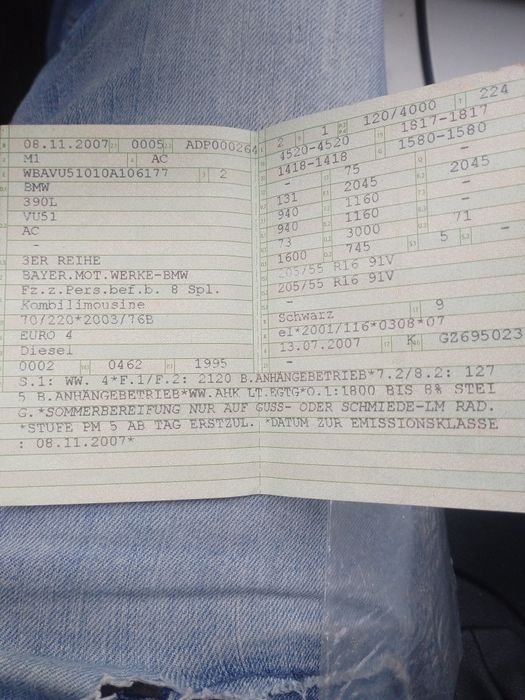 08.11.2007 0005 ADP000264
M1 AC
WBAVU51010A106177 2
BMW
390L
VU51
AC
-
3ER REIHE
BAYER.MOT.WERKE-BMW
Fz.z.Pers.bef.b. 8 Spl.
Kombilimousine
70/220*2003/76B
EURO 4
Diesel
0002 0462 1995
2 1 120/4000 224
4520-4520 1817-1817
1418-1418 1580-1580
- 75 -
131 2045 2045
940 1160 -
940 1160 -
73 3000 71
1600 745 5 -
205/55 R16 91V
205/55 R16 91V
-
Schwarz 9
e1*2001/116*0308*07
13.07.2007 K GZ695023
-
S.1: WW. 4*F.1/F.2: 2120 B.ANHÄNGEBETRIEB*7.2/8.2: 127
5 B.ANHÄNGEBETRIEB*WW.AHK LT.EGTG*O.1:1800 BIS 8% STEI
G.*SOMMERBEREIFUNG NUR AUF GUSS- ODER SCHMIEDE-LM RAD.
*STUFE PM 5 AB TAG ERSTZUL. *DATUM ZUR EMISSIONSKLASSE
: 08.11.2007*